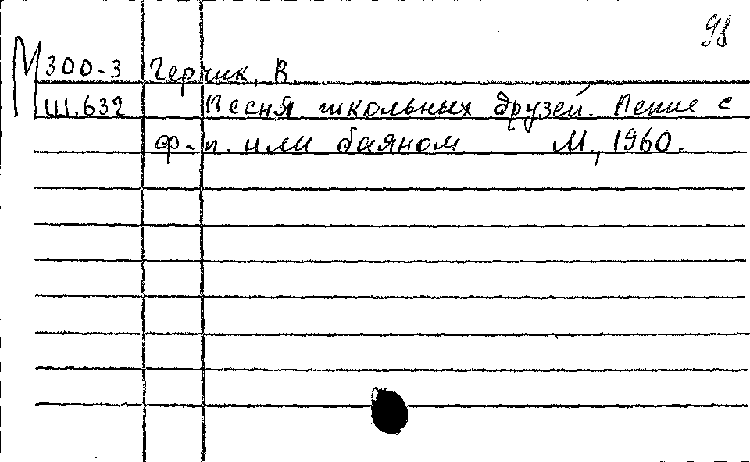 98
М 300-3 Герчик, В.
Ш.632 Песня школьных друзей. Пение с
ф-п. или баяном М., 1960.